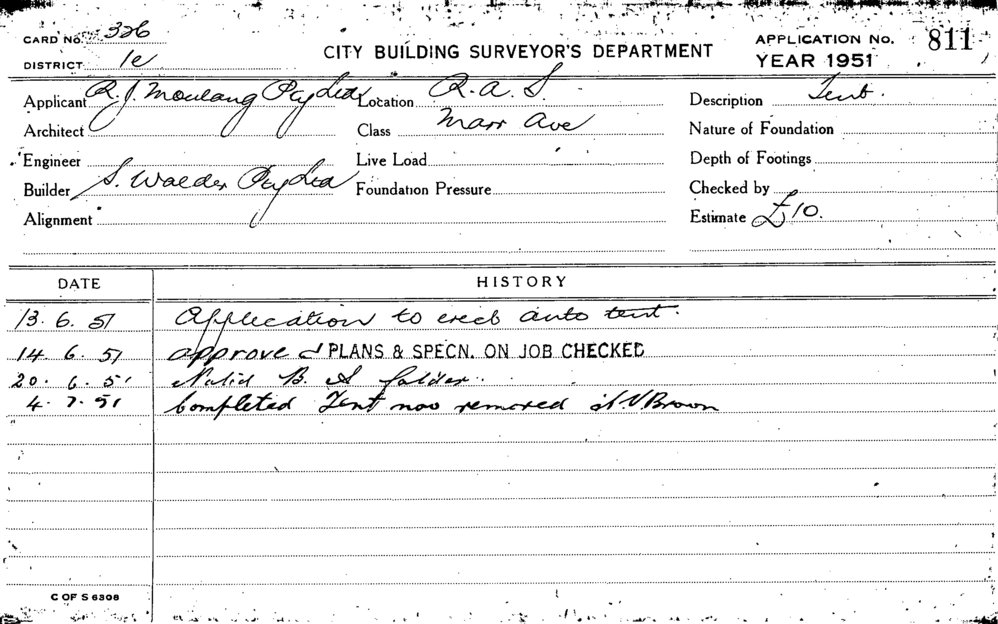 CARD No. 326
CITY BUILDING SURVEYOR'S DEPARTMENT
APPLICATION No. 811
DISTRICT 1e
YEAR 1951
Applicant R. J. Moulang Pty Ltd Location R. A. S. Description Tent.
Architect Class Marr Ave Nature of Foundation
Engineer Live Load Depth of Footings
Builder S. Walder Pty Ltd Foundation Pressure Checked by
Alignment Estimate £10.
DATE HISTORY
13. 6. 51 Application to erect auto tent.
14. 6. 51 approved PLANS & SPECN. ON JOB CHECKED
20. 6. 51 B. S folder.
4. 7. 51 Completed Tent now removed N.V. Brown
C OF S 6308